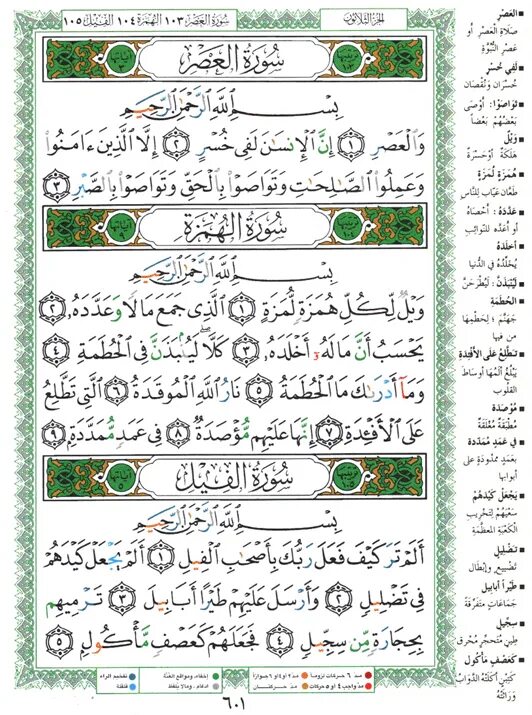 سُورَةُ العَصْرِ ١٠٣ الهُمَزَة ١٠٤ الفِيْل ١٠٥
الجزء الثلاثون
سُورَةُ العَصْرِ
بِسْمِ ٱللَّهِ ٱلرَّحْمَٰنِ ٱلرَّحِيمِ
وَٱلْعَصْرِ ١ إِنَّ ٱلْإِنسَٰنَ لَفِى خُسْرٍ ٢ إِلَّا ٱلَّذِينَ ءَامَنُوا۟
وَعَمِلُوا۟ ٱلصَّٰلِحَٰتِ وَتَوَاصَوْا۟ بِٱلْحَقِّ وَتَوَاصَوْا۟ بِٱلصَّبْرِ ٣
سُورَةُ الهُمَزَةِ
بِسْمِ ٱللَّهِ ٱلرَّحْمَٰنِ ٱلرَّحِيمِ
وَيْلٌ لِّكُلِّ هُمَزَةٍ لُّمَزَةٍ ١ ٱلَّذِى جَمَعَ مَالًا وَعَدَّدَهُۥ ٢
يَحْسَبُ أَنَّ مَالَهُۥٓ أَخْلَدَهُۥ ٣ كَلَّا ۖ لَيُنۢبَذَنَّ فِى ٱلْحُطَمَةِ ٤
وَمَآ أَدْرَىٰكَ مَا ٱلْحُطَمَةُ ٥ نَارُ ٱللَّهِ ٱلْمُوقَدَةُ ٦ ٱلَّتِى تَطَّلِعُ
عَلَى ٱلْأَفْـِٔدَةِ ٧ إِنَّهَا عَلَيْهِم مُّؤْصَدَةٌ ٨ فِى عَمَدٍ مُّمَدَّدَةٍۭ ٩
سُورَةُ الفِيلِ
بِسْمِ ٱللَّهِ ٱلرَّحْمَٰنِ ٱلرَّحِيمِ
أَلَمْ تَرَ كَيْفَ فَعَلَ رَبُّكَ بِأَصْحَٰبِ ٱلْفِيلِ ١ أَلَمْ يَجْعَلْ كَيْدَهُمْ
فِى تَضْلِيلٍ ٢ وَأَرْسَلَ عَلَيْهِمْ طَيْرًا أَبَابِيلَ ٣ تَرْمِيهِم
بِحِجَارَةٍ مِّن سِجِّيلٍ ٤ فَجَعَلَهُمْ كَعَصْفٍ مَّأْكُولٍۭ ٥
العَصْرِ
صَلَاةِ العَصْرِ أو
عَصْرِ النُّبُوَّة
لَفِي خُسْرٍ
خُسْرَانٍ ونُقْصَان
تَوَاصَوْا : أَوْصَى
بَعْضُهُمْ بَعْضًا
وَيْلٌ
هَلَكَةٌ أوْ حَسْرَةٌ
هُمَزَةٍ لُمَزَةٍ
طَعَّانٍ عَيَّابٍ لِلنَّاسِ
عَدَّدَهُ : أَحْصَاهُ
أو أَعَدَّه للنَّوَائِبِ
أَخْلَدَهُ
يُخَلِّدُهُ فِي الدُّنْيَا
لَيُنْبَذَنَّ : لَيُطْرَحَنَّ
الحُطَمَةِ
جَهَنَّمَ ؛ لِحَطْمِهَا
مَن فيها
تَطَّلِعُ عَلَى الأَفْئِدَةِ
يَبْلُغُ أَلَمُهَا أَوْسَاطَ
القُلُوبِ
مُؤْصَدَةٌ
مُطْبَقَةٌ مُغْلَقَةٌ
فِي عَمَدٍ مُمَدَّدَةٍ
بِعَمَدٍ مَمْدُودَةٍ على
أبوابها
يَجْعَلْ كَيْدَهُمْ
سَعْيَهُمْ لِتَخْرِيبِ
الكَعْبَةِ المعظَّمة
تَضْلِيلٍ
تَضْيِيعٍ وإبْطَالٍ
طَيْرًا أَبَابِيلَ
جَمَاعَاتٍ مُتَفَرِّقَةً
سِجِّيلٍ
طِينٍ مُتَحَجِّرٍ مُحْرَقٍ
كَعَصْفٍ مَأْكُولٍ
كَتِبْنٍ أَكَلَتْهُ الدَّوَابُّ
وَرَاثَتْهُ
مد ٦ حركات لزوماً
مد ٢ أو ٤ أو ٦ جوازاً
إخفاء، ومواقع الغنة
تفخيم الراء
مد واجب ٤ أو ٥ حركات
مد حركتان
ادغام ، وما لا يلفظ
قلقلة
٦٠١